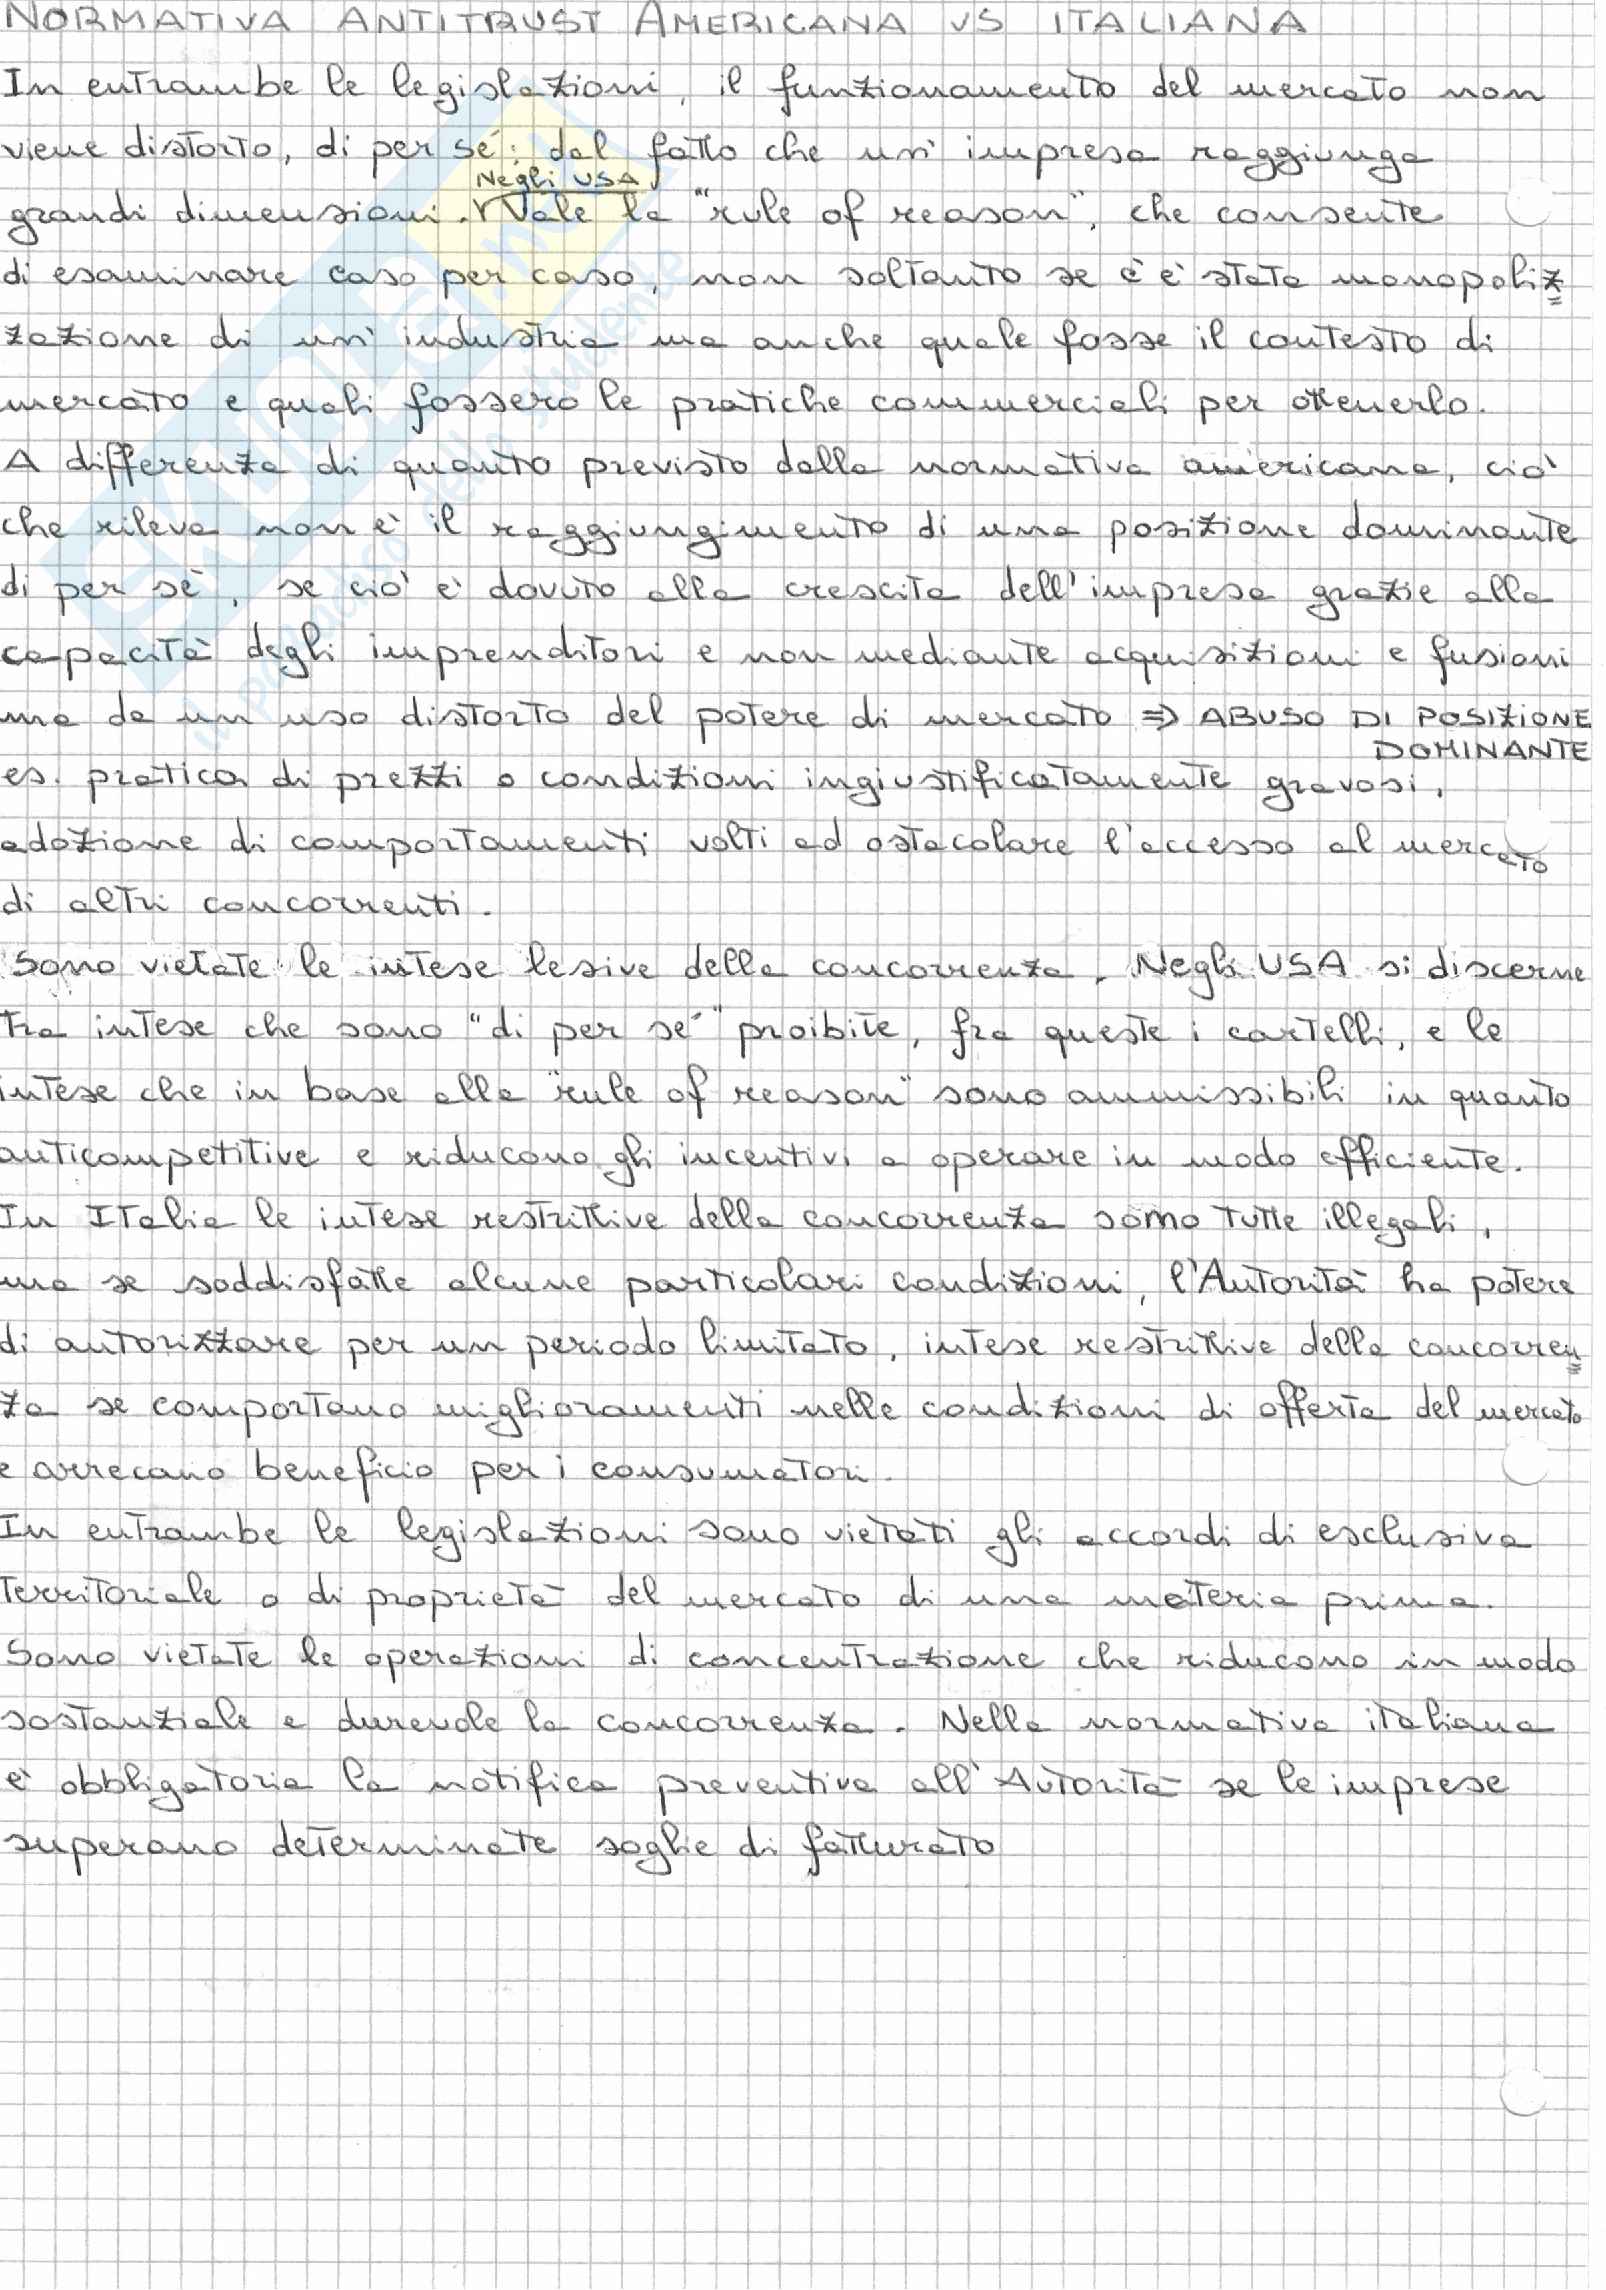 NORMATIVA ANTITRUST AMERICANA VS ITALIANA
In entrambe le legislazioni, il funzionamento del mercato non
viene distorto, di per sé, dal fatto che un'impresa raggiunga
Negli USA
grandi dimensioni. Vale la "rule of reason", che consente
di esaminare caso per caso, non soltanto se c'è stata monopoliz
zazione di un'industria ma anche quale fosse il contesto di
mercato e quali fossero le pratiche commerciali per ottenerlo.
A differenza di quanto previsto dalla normativa americana, ciò
che rileva non è il raggiungimento di una posizione dominante
di per sè, se ciò è dovuto alla crescita dell'impresa grazie alla
capacità degli imprenditori e non mediante acquisizioni e fusioni
ma da un uso distorto del potere di mercato ⇒ ABUSO DI POSIZIONE
DOMINANTE
es. pratica di prezzi o condizioni ingiustificatamente gravosi,
adozione di comportamenti volti ad ostacolare l'accesso al mercato
di altri concorrenti.
Sono vietate le intese lesive della concorrenza. Negli USA si discerne
tra intese che sono "di per sé" proibite, fra queste i cartelli, e le
intese che in base alla "rule of reason" sono ammissibili in quanto
anticompetitive e riducono gli incentivi a operare in modo efficiente.
In Italia le intese restrittive della concorrenza sono tutte illegali,
ma se soddisfatte alcune particolari condizioni, l'Autorità ha potere
di autorizzare per un periodo limitato, intese restrittive della concorren
za se comportano miglioramenti nelle condizioni di offerta del mercato
e arrecano beneficio per i consumatori.
In entrambe le legislazioni sono vietati gli accordi di esclusiva
territoriale o di proprietà del mercato di una materia prima.
Sono vietate le operazioni di concentrazione che riducono in modo
sostanziale e durevole la concorrenza. Nella normativa italiana
è obbligatoria la notifica preventiva all'Autorità se le imprese
superano determinate soglie di fatturato